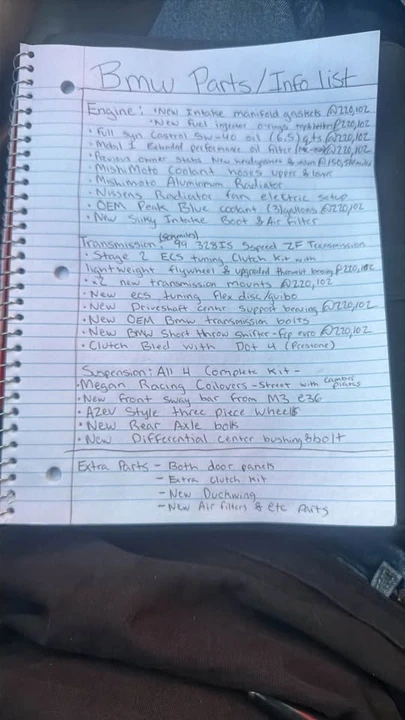 Bmw Parts/Info list
Engine: • New Intake manifold gaskets @220,102
• New Fuel injector o-rings @220,102
• Full syn Castrol 5w-40 oil (6.5) qts @220,102
• Mobil 1 Extended performance oil filter @220,102
• Previous owner states New headgasket @150,
• MishiMoto Coolant hoses upper & lower
• Mishimoto Aluminum Radiator
• Nissens Radiator fan electric setup
• OEM Peak Blue coolant (3)gallons @220,102
• New Silky Intake Boot & Air Filter
Transmission: 99 328IS 5speed ZF Transmission
• Stage 2 ECS tuning Clutch Kit with
lightweight flywheel & upgraded bearing @220,102
• x2 new transmission mounts @220,102
• New ecs tuning flex disc/guibo
• New Driveshaft center Support bearing @220,102
• New OEM Bmw transmission bolts
• New BMW Short throw shifter - Fcp euro @220,102
• Clutch Bled with Dot 4 (Prestone)
Suspension: All 4 Complete Kit -
• Megan Racing Coilovers - Street with camber plates
• New front sway bar from M3 e36
• Azev Style three piece Wheels
• New Rear Axle bolts
• New Differential center bushing & bolt
Extra Parts - Both door panels
- Extra Clutch Kit
- New Duckwing
- New Air filters & etc Parts